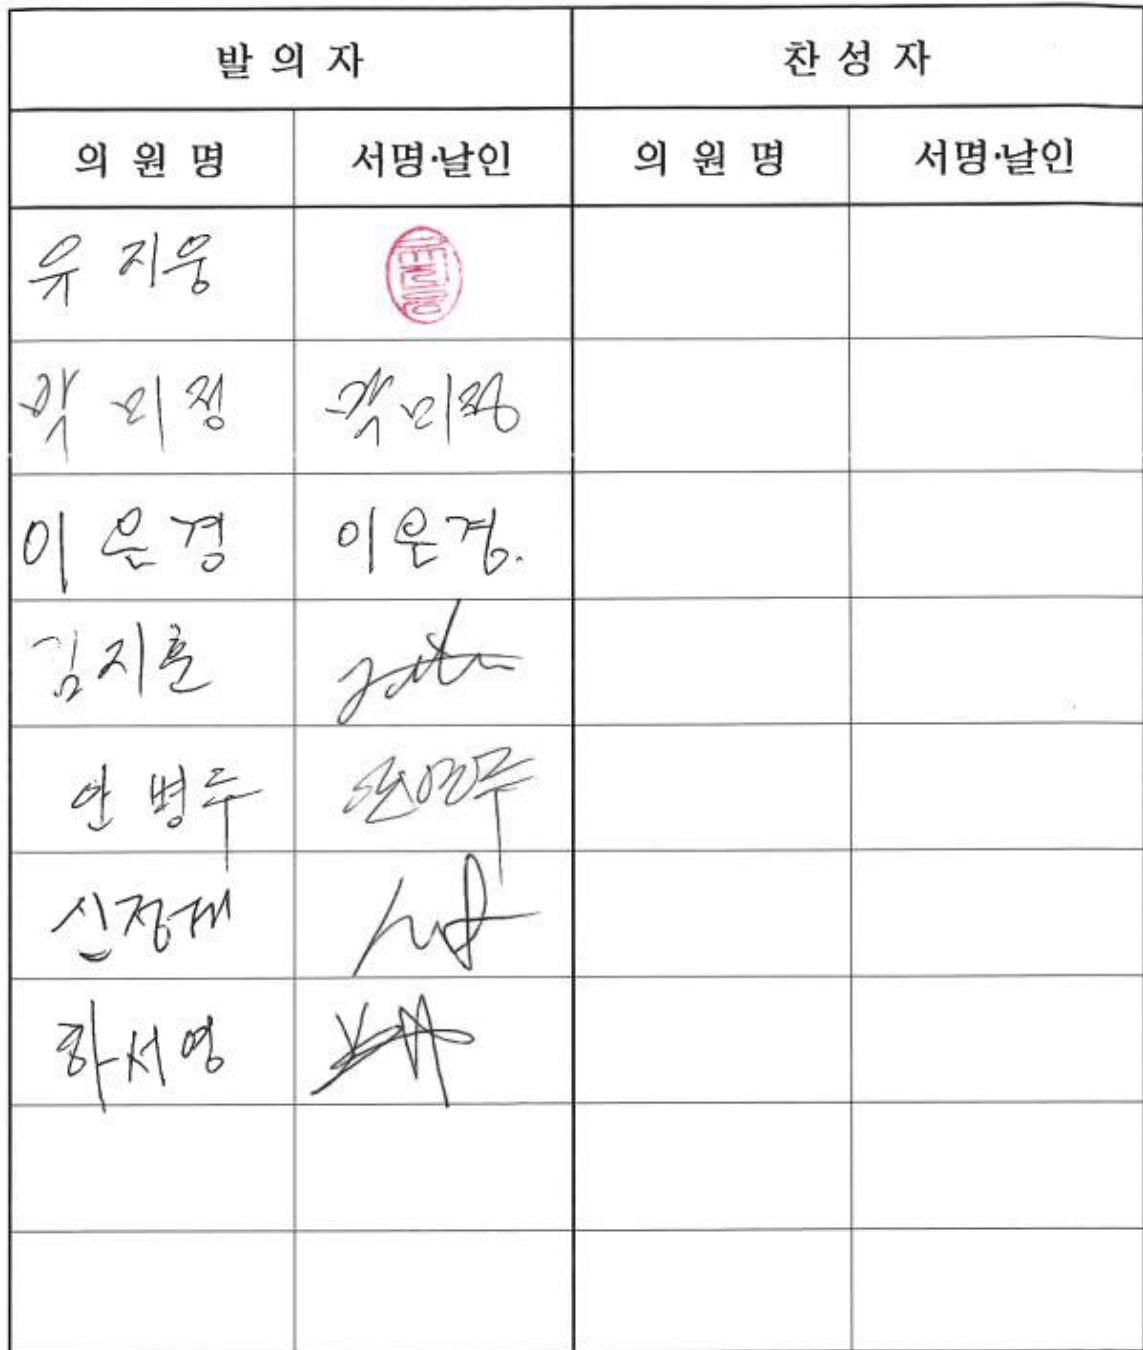 발 의 자 찬 성 자
의 원 명 서명·날인 의 원 명 서명·날인
유 지웅
박 미정 박미정
이 은 경 이은경.
김지훈
안 병두 안병두
신정
하서영